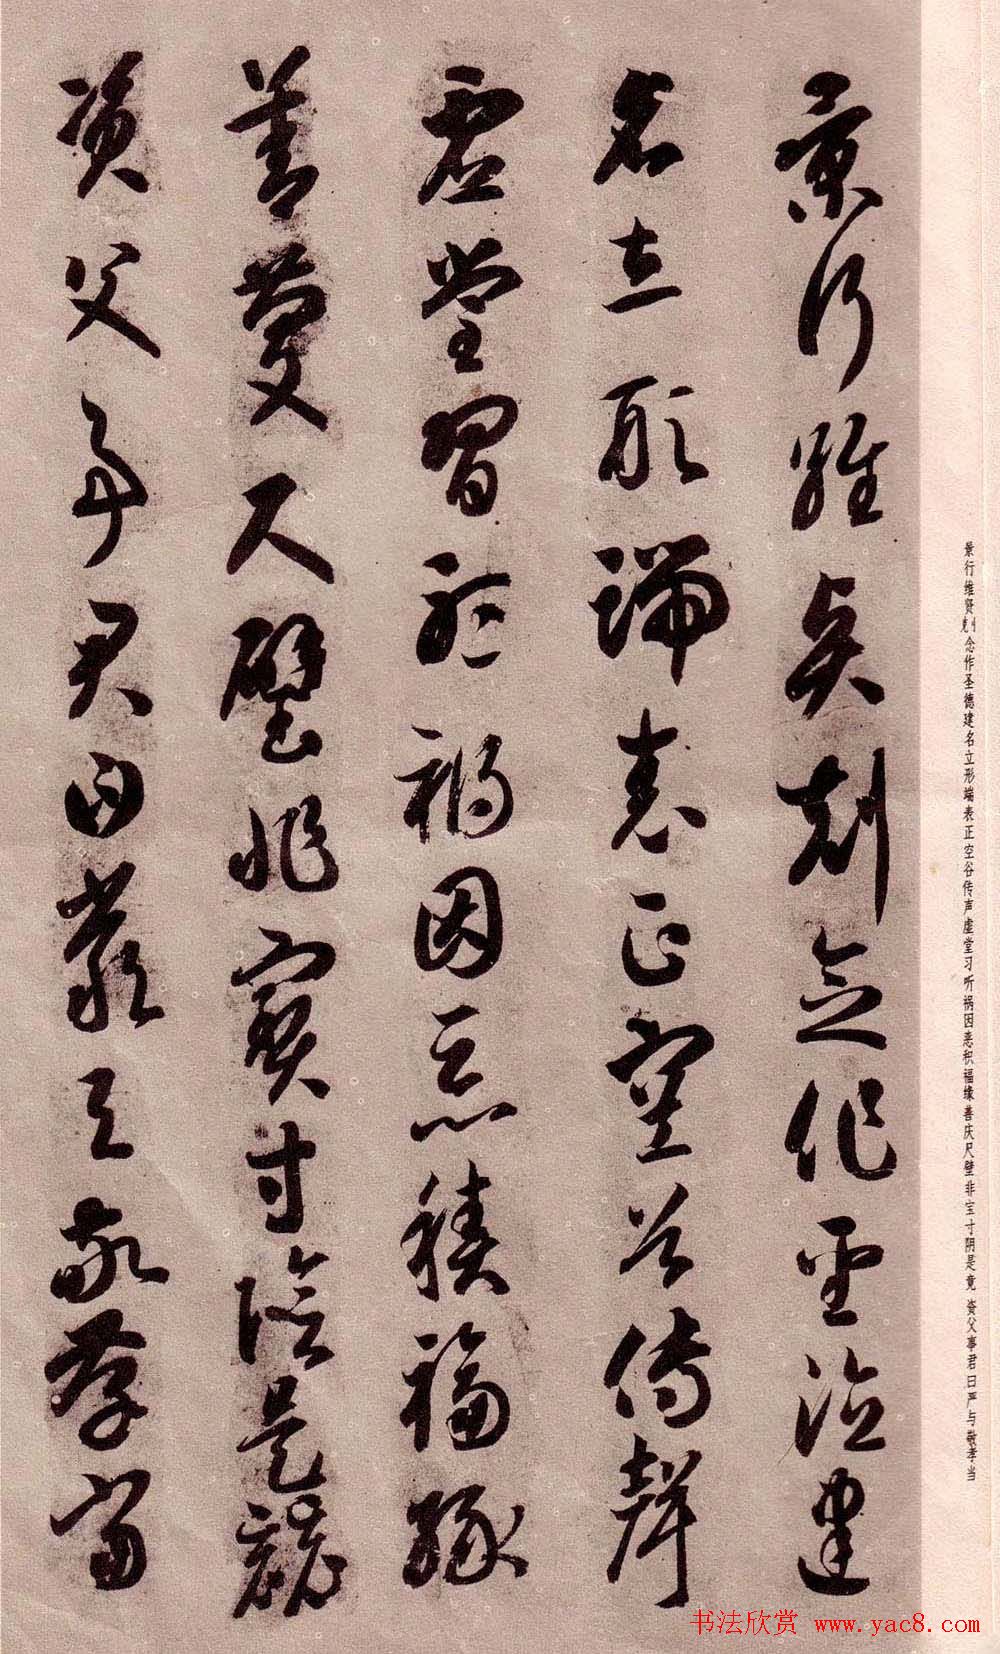 景行維賢剋念作聖德建
名立形端表正空谷傳聲
虛堂習聽禍因惡積福緣
善慶尺璧非寶寸陰是競
資父事君曰嚴與敬孝當
景行维贤剋念作圣德建名立形端表正空谷传声虚堂习听祸因恶积福缘善庆尺璧非宝寸阴是竟 资父事君曰严与敬孝当
书法欣赏 www.yac8.com